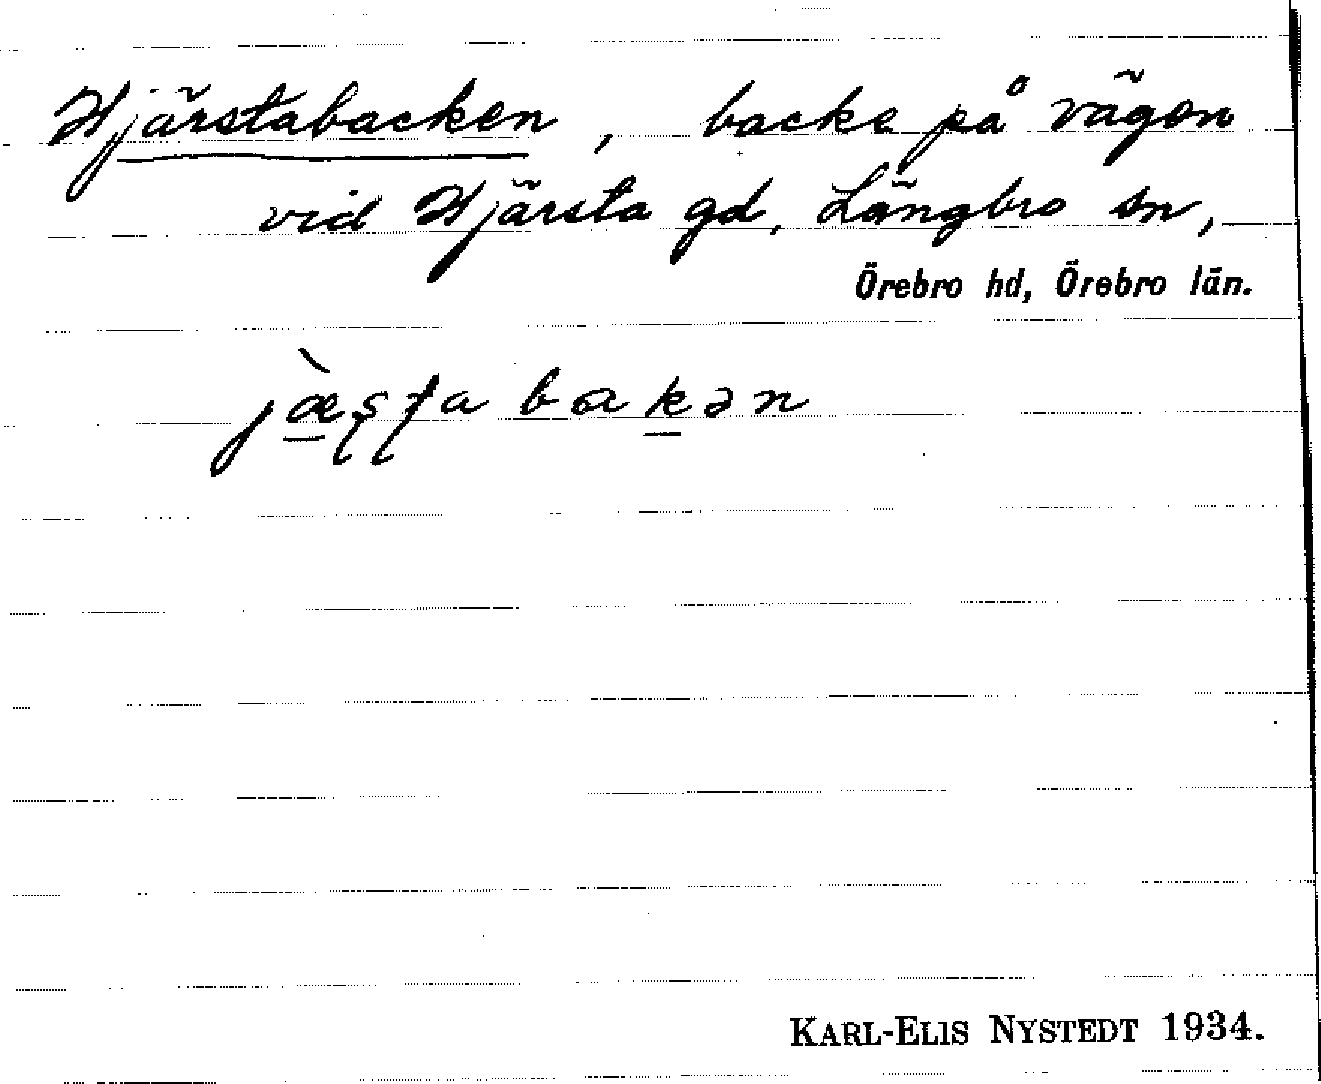 Hjärstabacken, backe på vägen
vid Hjärsta gd, Längbro sn,
Örebro hd, Örebro län.
jæ̀ʂʈabakən
KARL-ELIS NYSTEDT 1934.